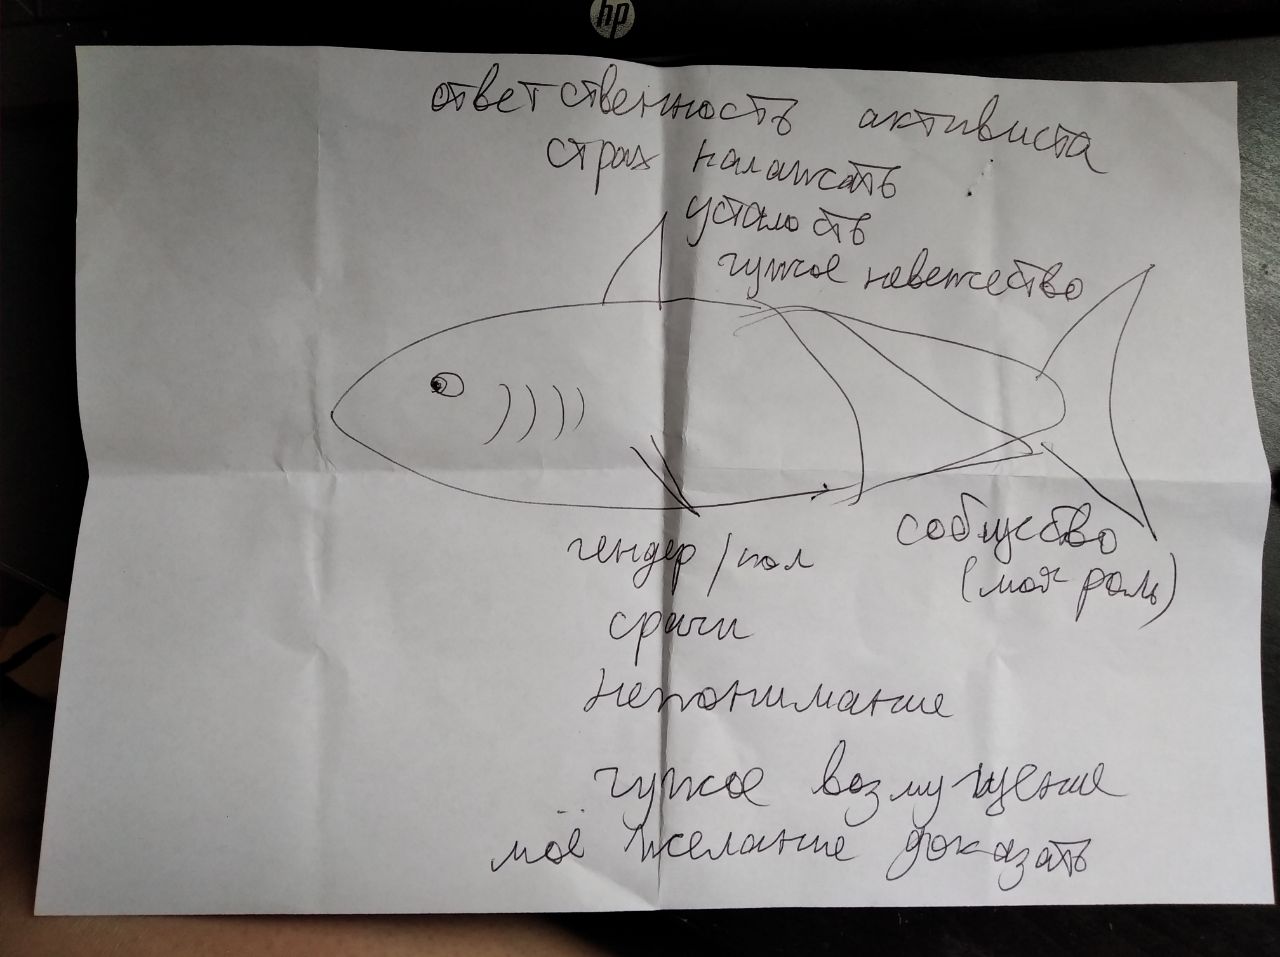 hp
ответственность активиста
страх налажать
усталость
чужое невежество
сообщество
(моя роль)
гендер/пол
срачи
непонимание
чужое возмущение
моё желание доказать